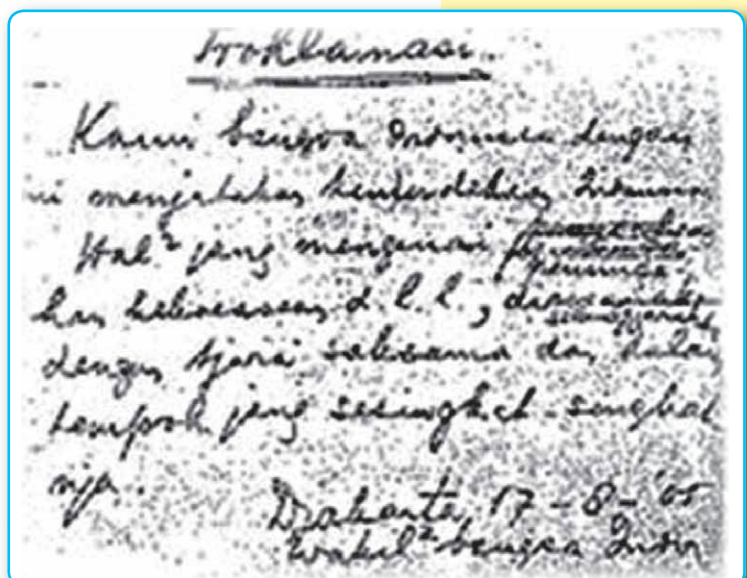 Proklamasi.
Kami bangsa Indonesia dengan
ini menjatakan kemerdekaan
Hal² jang mengenai peminda-
han kekoeasaan d.l.l., diselenggarakan
dengan tjara saksama dan dalam
tempoh jang sesingkat-singkat
nja.
Djakarta, 17-8-'05
Wakil² bangsa Indon